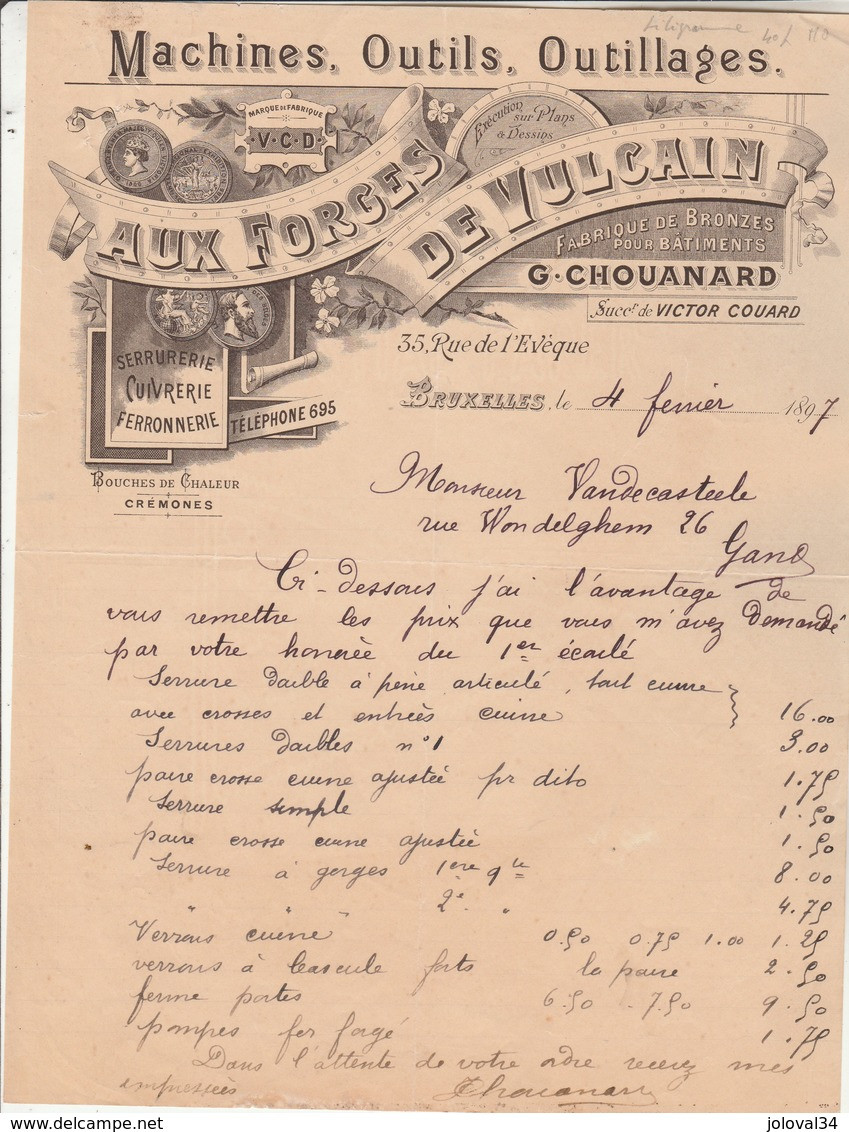 Filigramme 40f
Machines, Outils, Outillages.
MARQUE DE FABRIQUE
V.C.D.
Exécution
sur Plans
& Dessins
AUX FORGES DE VULCAIN
FABRIQUE DE BRONZES
POUR BÂTIMENTS
G. CHOUANARD
Succr. de VICTOR COUARD
SERRURERIE
CUIVRERIE
FERRONNERIE
TÉLÉPHONE 695
BOUCHES DE CHALEUR
CRÉMONES
35, Rue de l'Evêque
BRUXELLES, le 4 fevrier 1897
Monsieur Vandecasteele
rue Wondelghem 26
Gand
Ci-dessous j'ai l'avantage de
vous remettre les prix que vous m'avez demandé
par votre honorée du 1er écoulé
Serrure double à pène articulé, tout cuivre
avec crosses et entrées cuivre 16.00
Serrures doubles n°1 3.00
paire crosse cuivre ajustée pr dito 1.75
Serrure simple 1.50
paire crosse cuivre ajustée 1.50
Serrure à gorges 1ere qté 8.00
" " 2e " 4.75
Verrous cuivre 0.50 0.75 1.00 1.25
verrous à bascule forts la paire 2.50
ferme portes 6.50 - 7.50 9.50
pompes fer forgé 1.75
Dans l'attente de votre ordre recevez mes
empressées
Chouanard
delcampe.net
joloval34